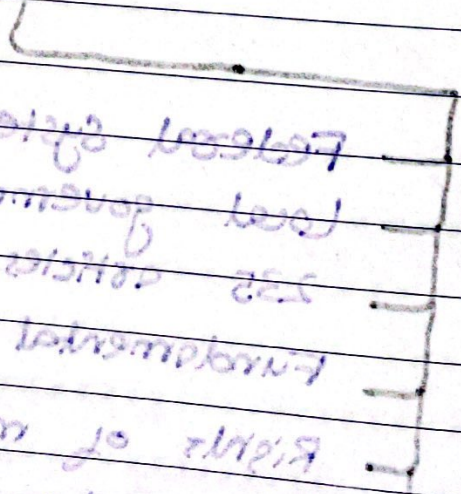 Federal syste
level governm
articles
Fundamental
Rights of